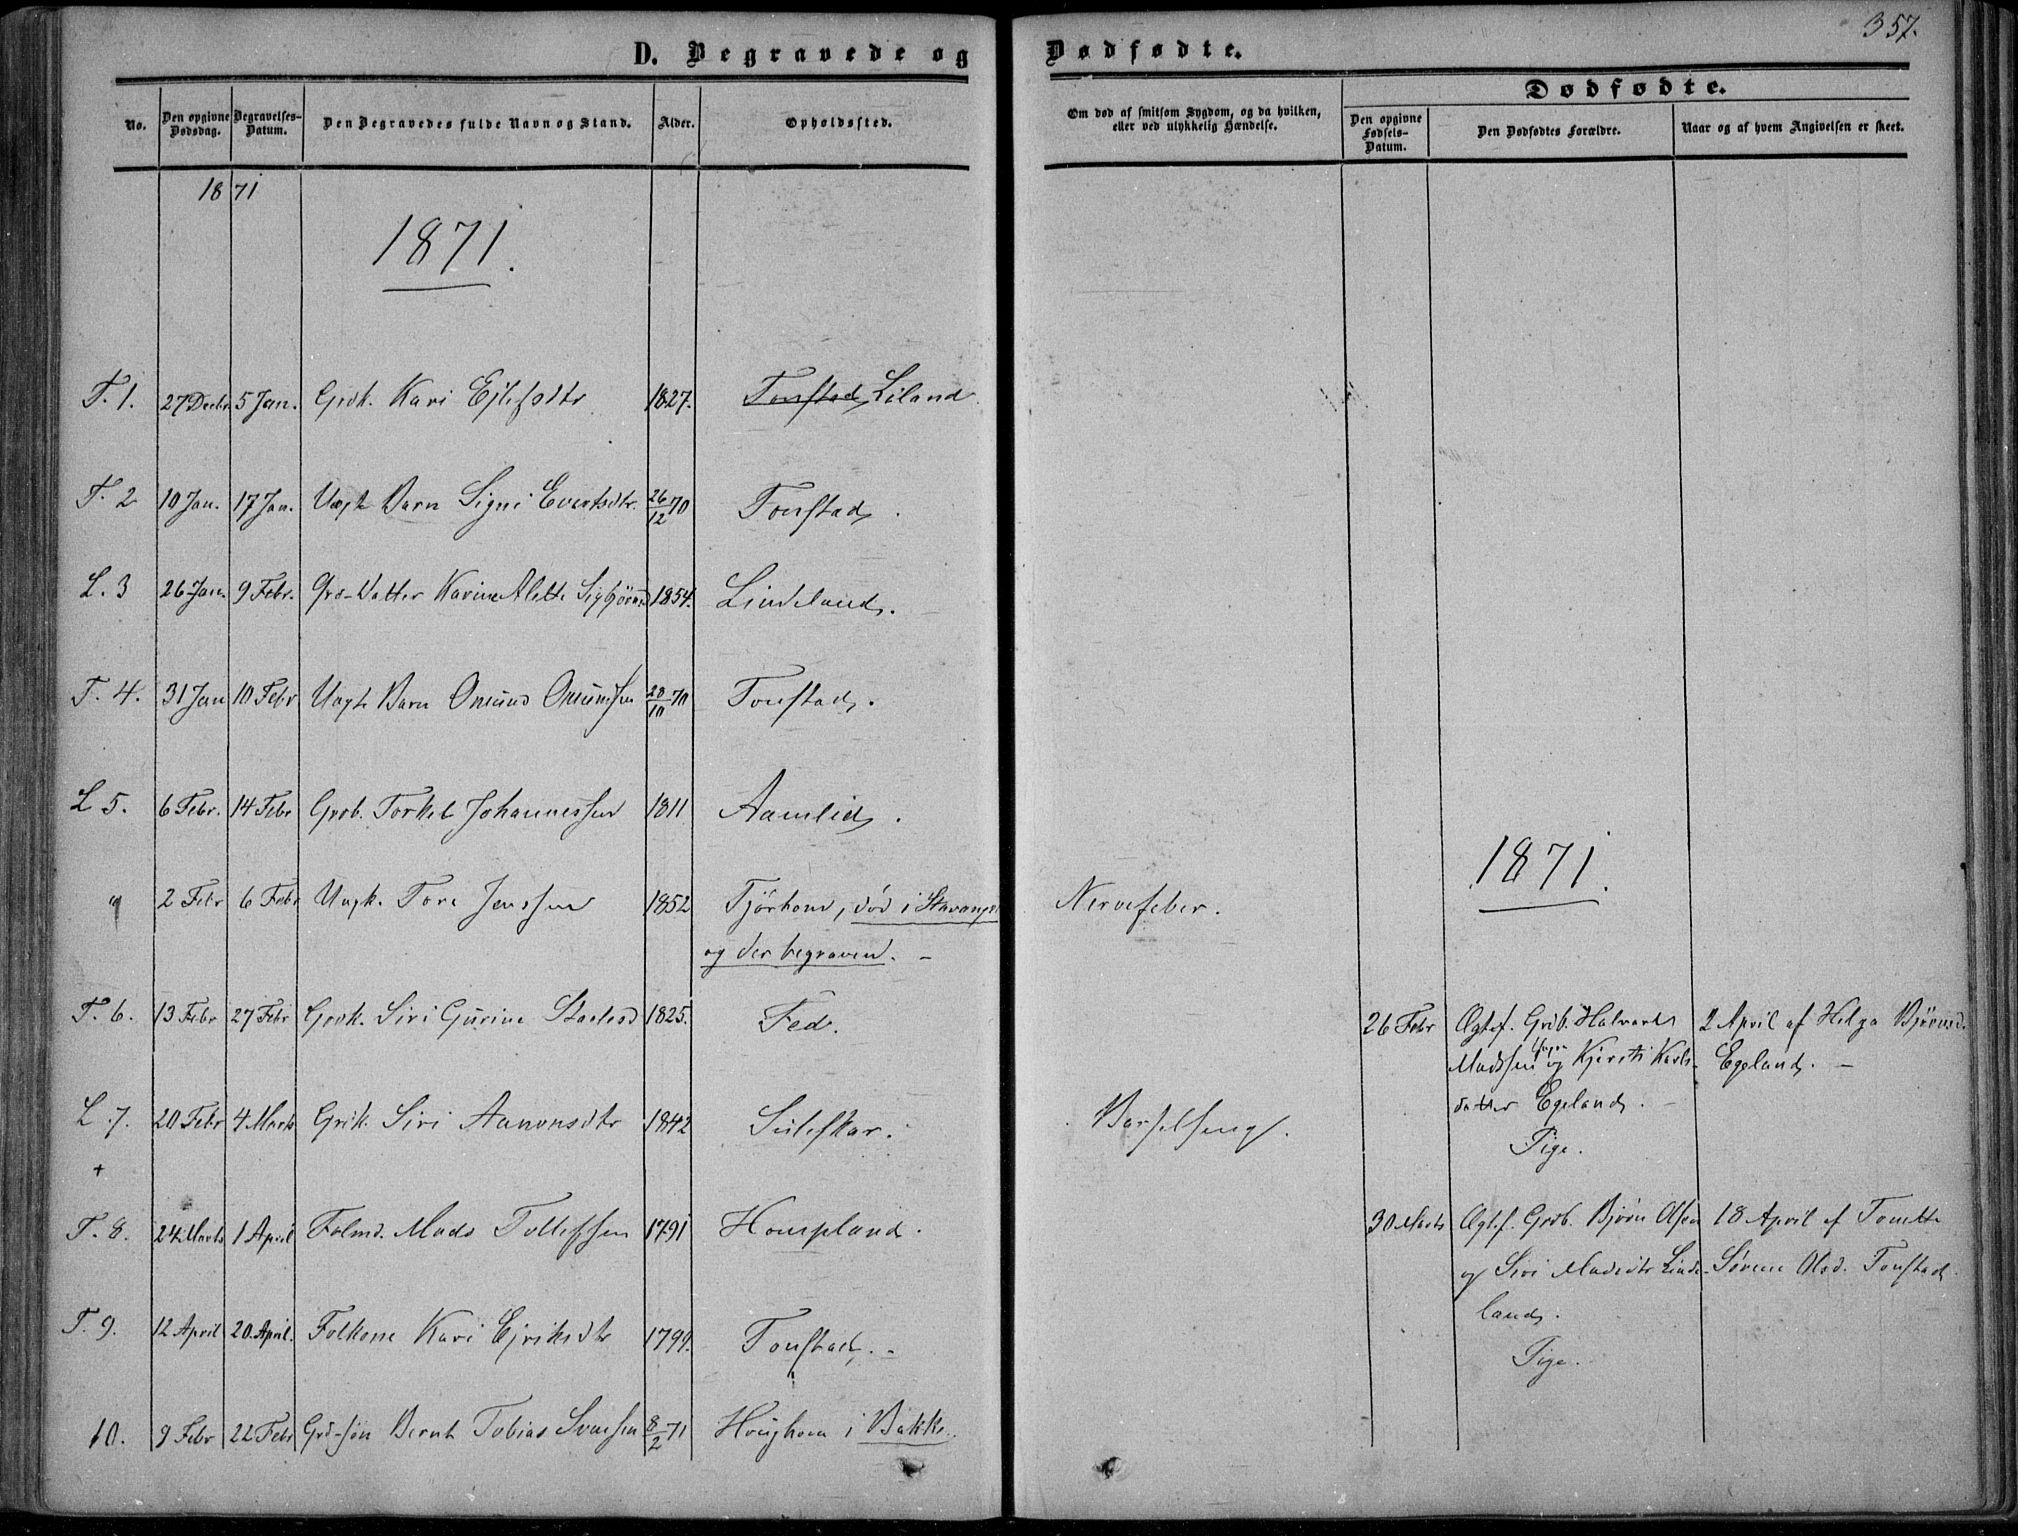 357.
D. Begravede og Dødfødte.
No.
Den opgivne Dødsdag.
Begravelses-Datum.
Den Begravedes fulde Navn og Stand.
Alder.
Opholdssted.
Om død af smitsom Sygdom, og da hvilken, eller ved ulykkelig Hændelse.
Dødfødte.
Den opgivne Fødsels-Datum.
Den Dødfødtes Forældre.
Naar og af hvem Angivelsen er skeet.
1871
1871.
T. 1. 27 Decbr 5 Jan. Grdk. Kari Ejlifsdtr 1827. Tonstad Liland
T. 2 10 Jan. 17 Jan. Uægte Barn Signi Evertsdtr. 26/12 70 Tonstad.
L. 3 26 Jan. 9 Febr. Grd-Datter Karine Alette Sigbjørnsd 1854. Lindeland.
T. 4. 31 Jan 10 Febr Uægte Barn Omund Omundsen 28/10 70 Tonstad.
L 5. 6 Febr. 14 Febr Grdb. Torkel Johannessen 1811 Aamlid.
" 2 Febr 6 Febr Ungk. Tore Jenssen 1852 Tjörhom, död i Stavanger Nervefeber.
og der begraven. -
T. 6. 13 Febr 27 Febr Grdk. Siri Gurine Staalesd 1825. Fed.
L. 7. 20 Febr 4 Marts Grdk. Siri Aanonsdtr 1842 Suleskar. Barselseng.
+
T. 8. 24 Marts 1 April Folmd. Mads Tollefsen 1791 Hompland.
T. 9. 12 April 20 April. Folkone Kari Ejriksdtr 1799. Tonstad. -
10. 9 Febr 22 Febr Grd-sön Bernt Tobias Svensen 8/2 71 Houghom i Bakke.
1871.
26 Febr Ægtef. Grdb. Halvard 2 April af Helga Björnsd.
Madssen og Kjersti Karls- Egeland. -
datter Egeland. -
Pige.
30 Marts Ægtef. Grdb. Björn Olsen 18 April af Tonette
og Siri Madsdtr Linde- Sörine Olsd. Tonstad.
land.
Pige.